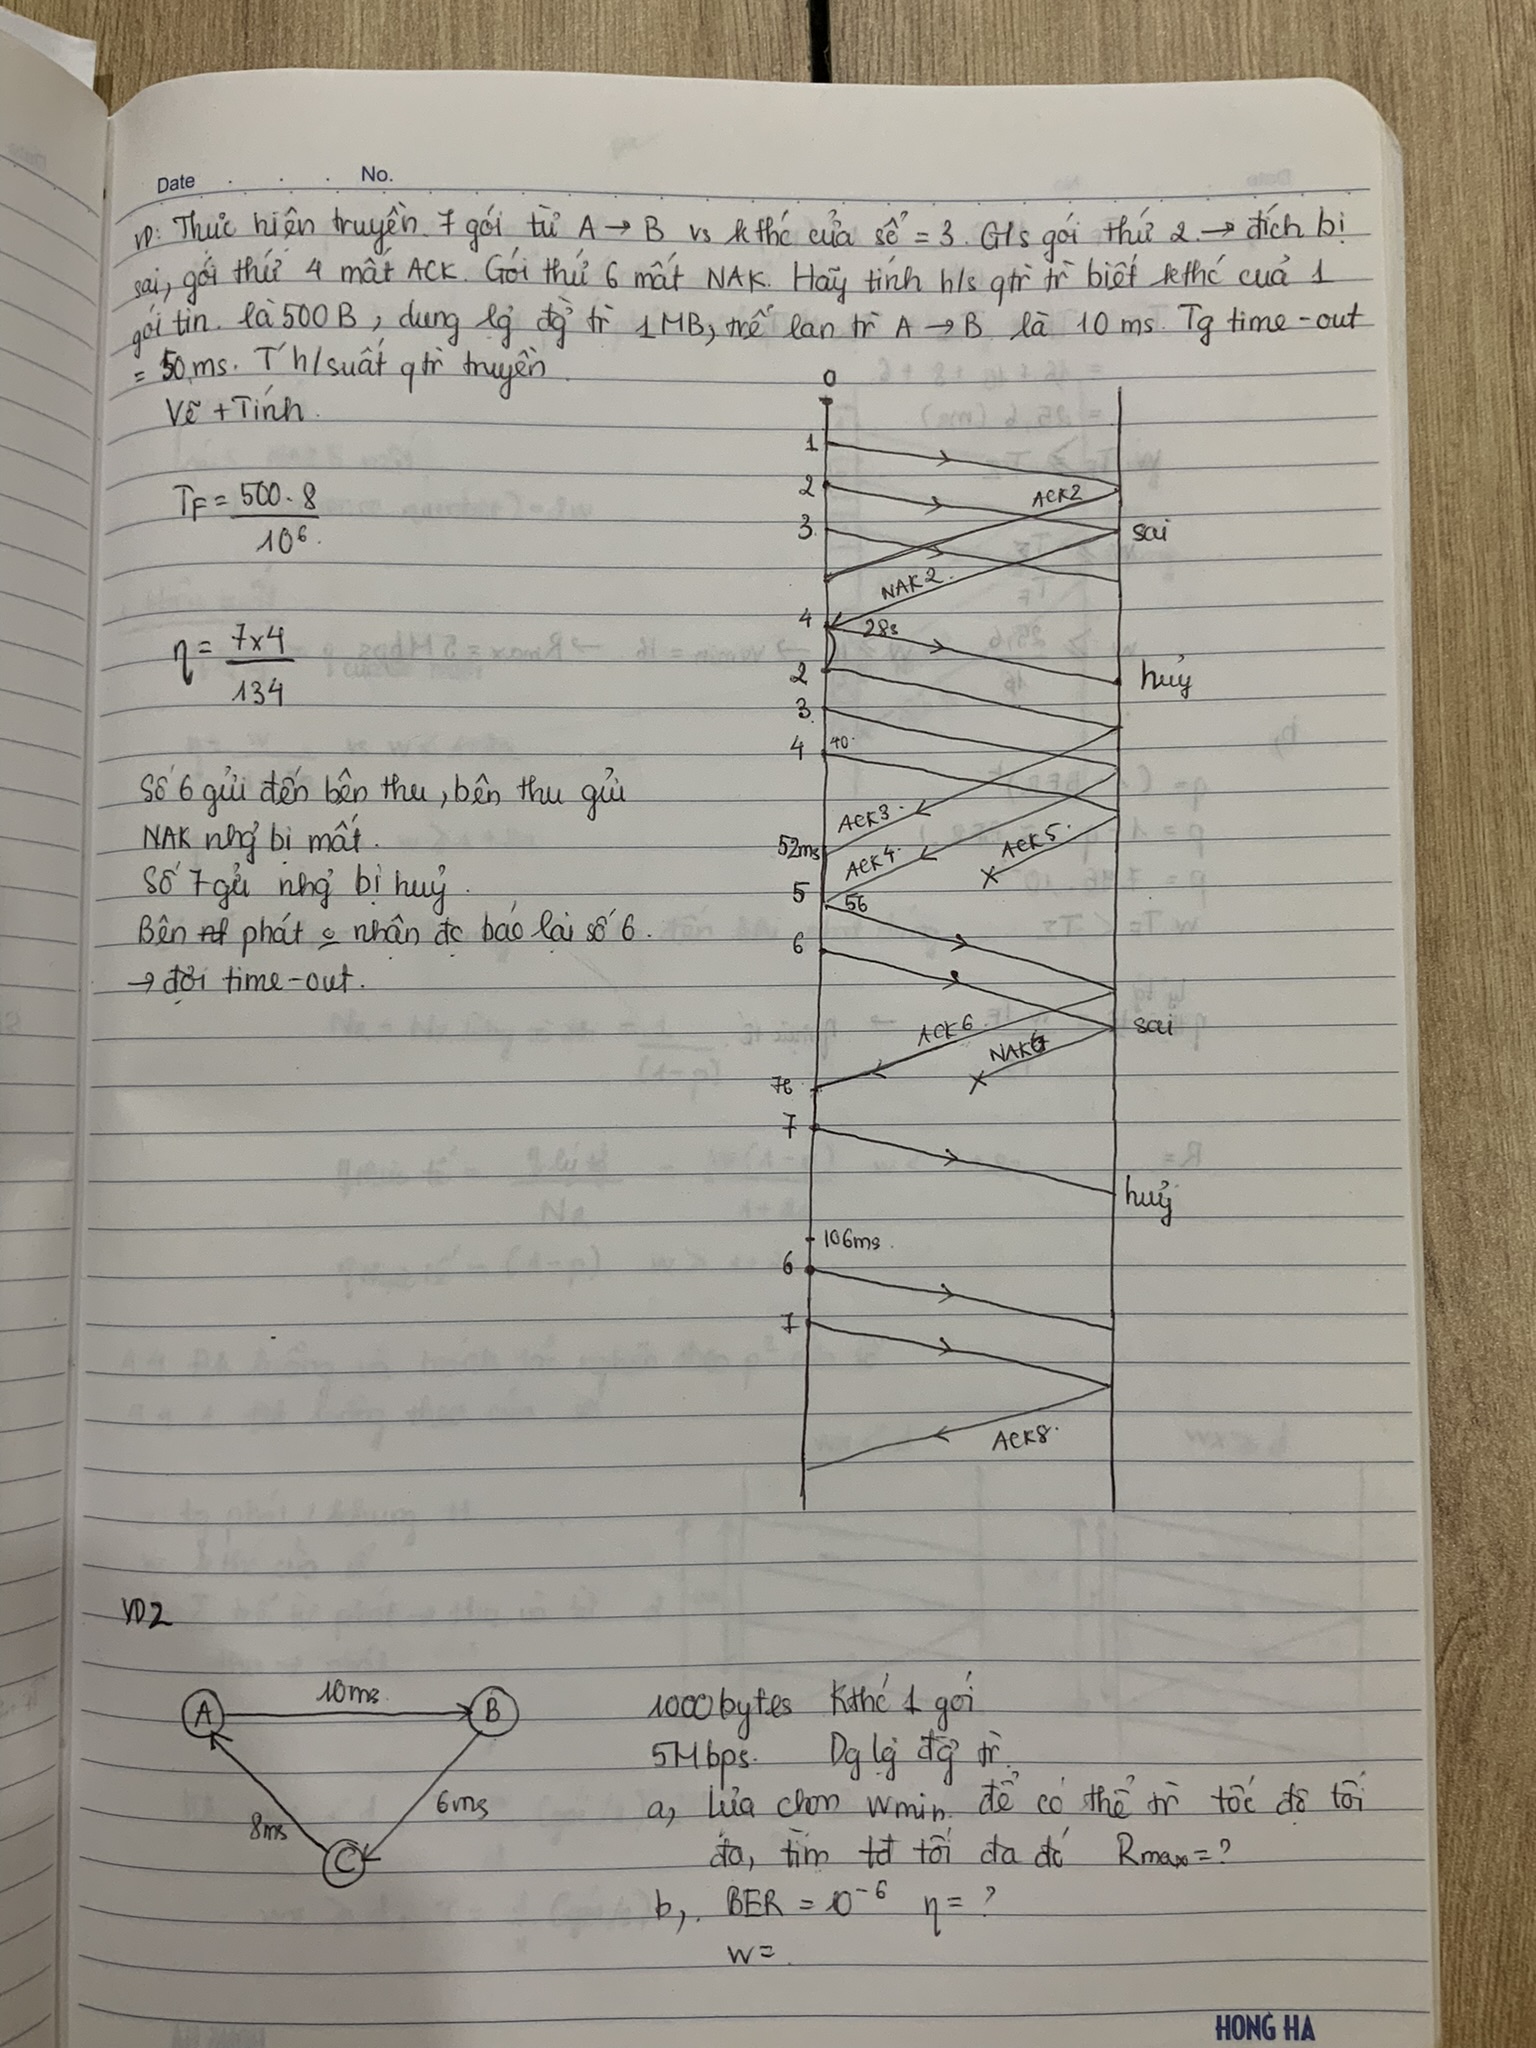 Date No.
VD: Thực hiện truyền 7 gói từ A → B vs kthć cửa sổ = 3. G/s gói thứ 2 → đích bị
sai, gói thứ 4 mất ACK. Gói thứ 6 mất NAK. Hãy tính h/s qtrì tr̀ biết kthć cuả 1
gói tin là 500B, dung lg đg tr̀ 1MB, trễ lan tr̀ A → B là 10 ms. Tg time-out
= 50ms. T' h/suất qtrì truyền.
Vẽ + Tính.
0
1
ACK2
2
TF = 500.8 / 10^6
3
sai
NAK2
4
28s
η = 7x4 / 134
2
huỷ
3
4
40
Số 6 gửi đến bên thu, bên thu gửi
NAK nhg bị mất.
Số 7 gửi nhg bị huỷ.
Bên phát o nhận đc báo lại số 6.
→ đợi time-out.
ACK3
52ms
ACK4
ACK5
5
56
6
ACK6
sai
NAK6
76
7
huỷ
106ms
6
7
ACK8
VD2
A 10ms B
6ms
8ms
C
1000bytes Kthć 1 gói
5Mbps. Dg lg đg tr̀
a, Lựa chọn wmin để có thể tr̀ tốc độ tối
đa, tìm tđ tối đa đó Rmax = ?
b, BER = 10^-6 η = ?
w =
HONG HA